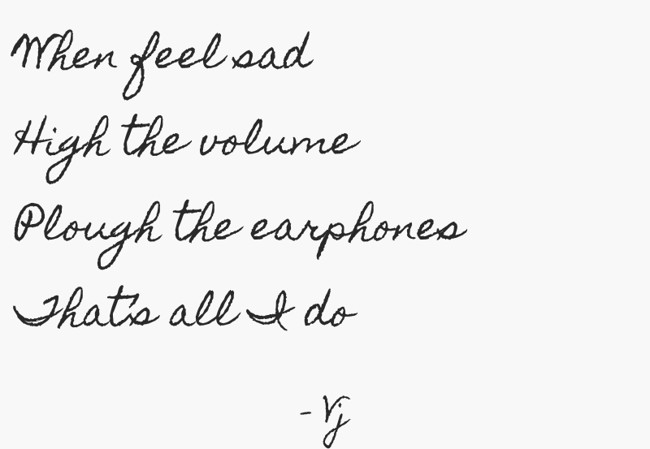 When feel sad
High the volume
Plough the earphones
That's all I do
- Vj